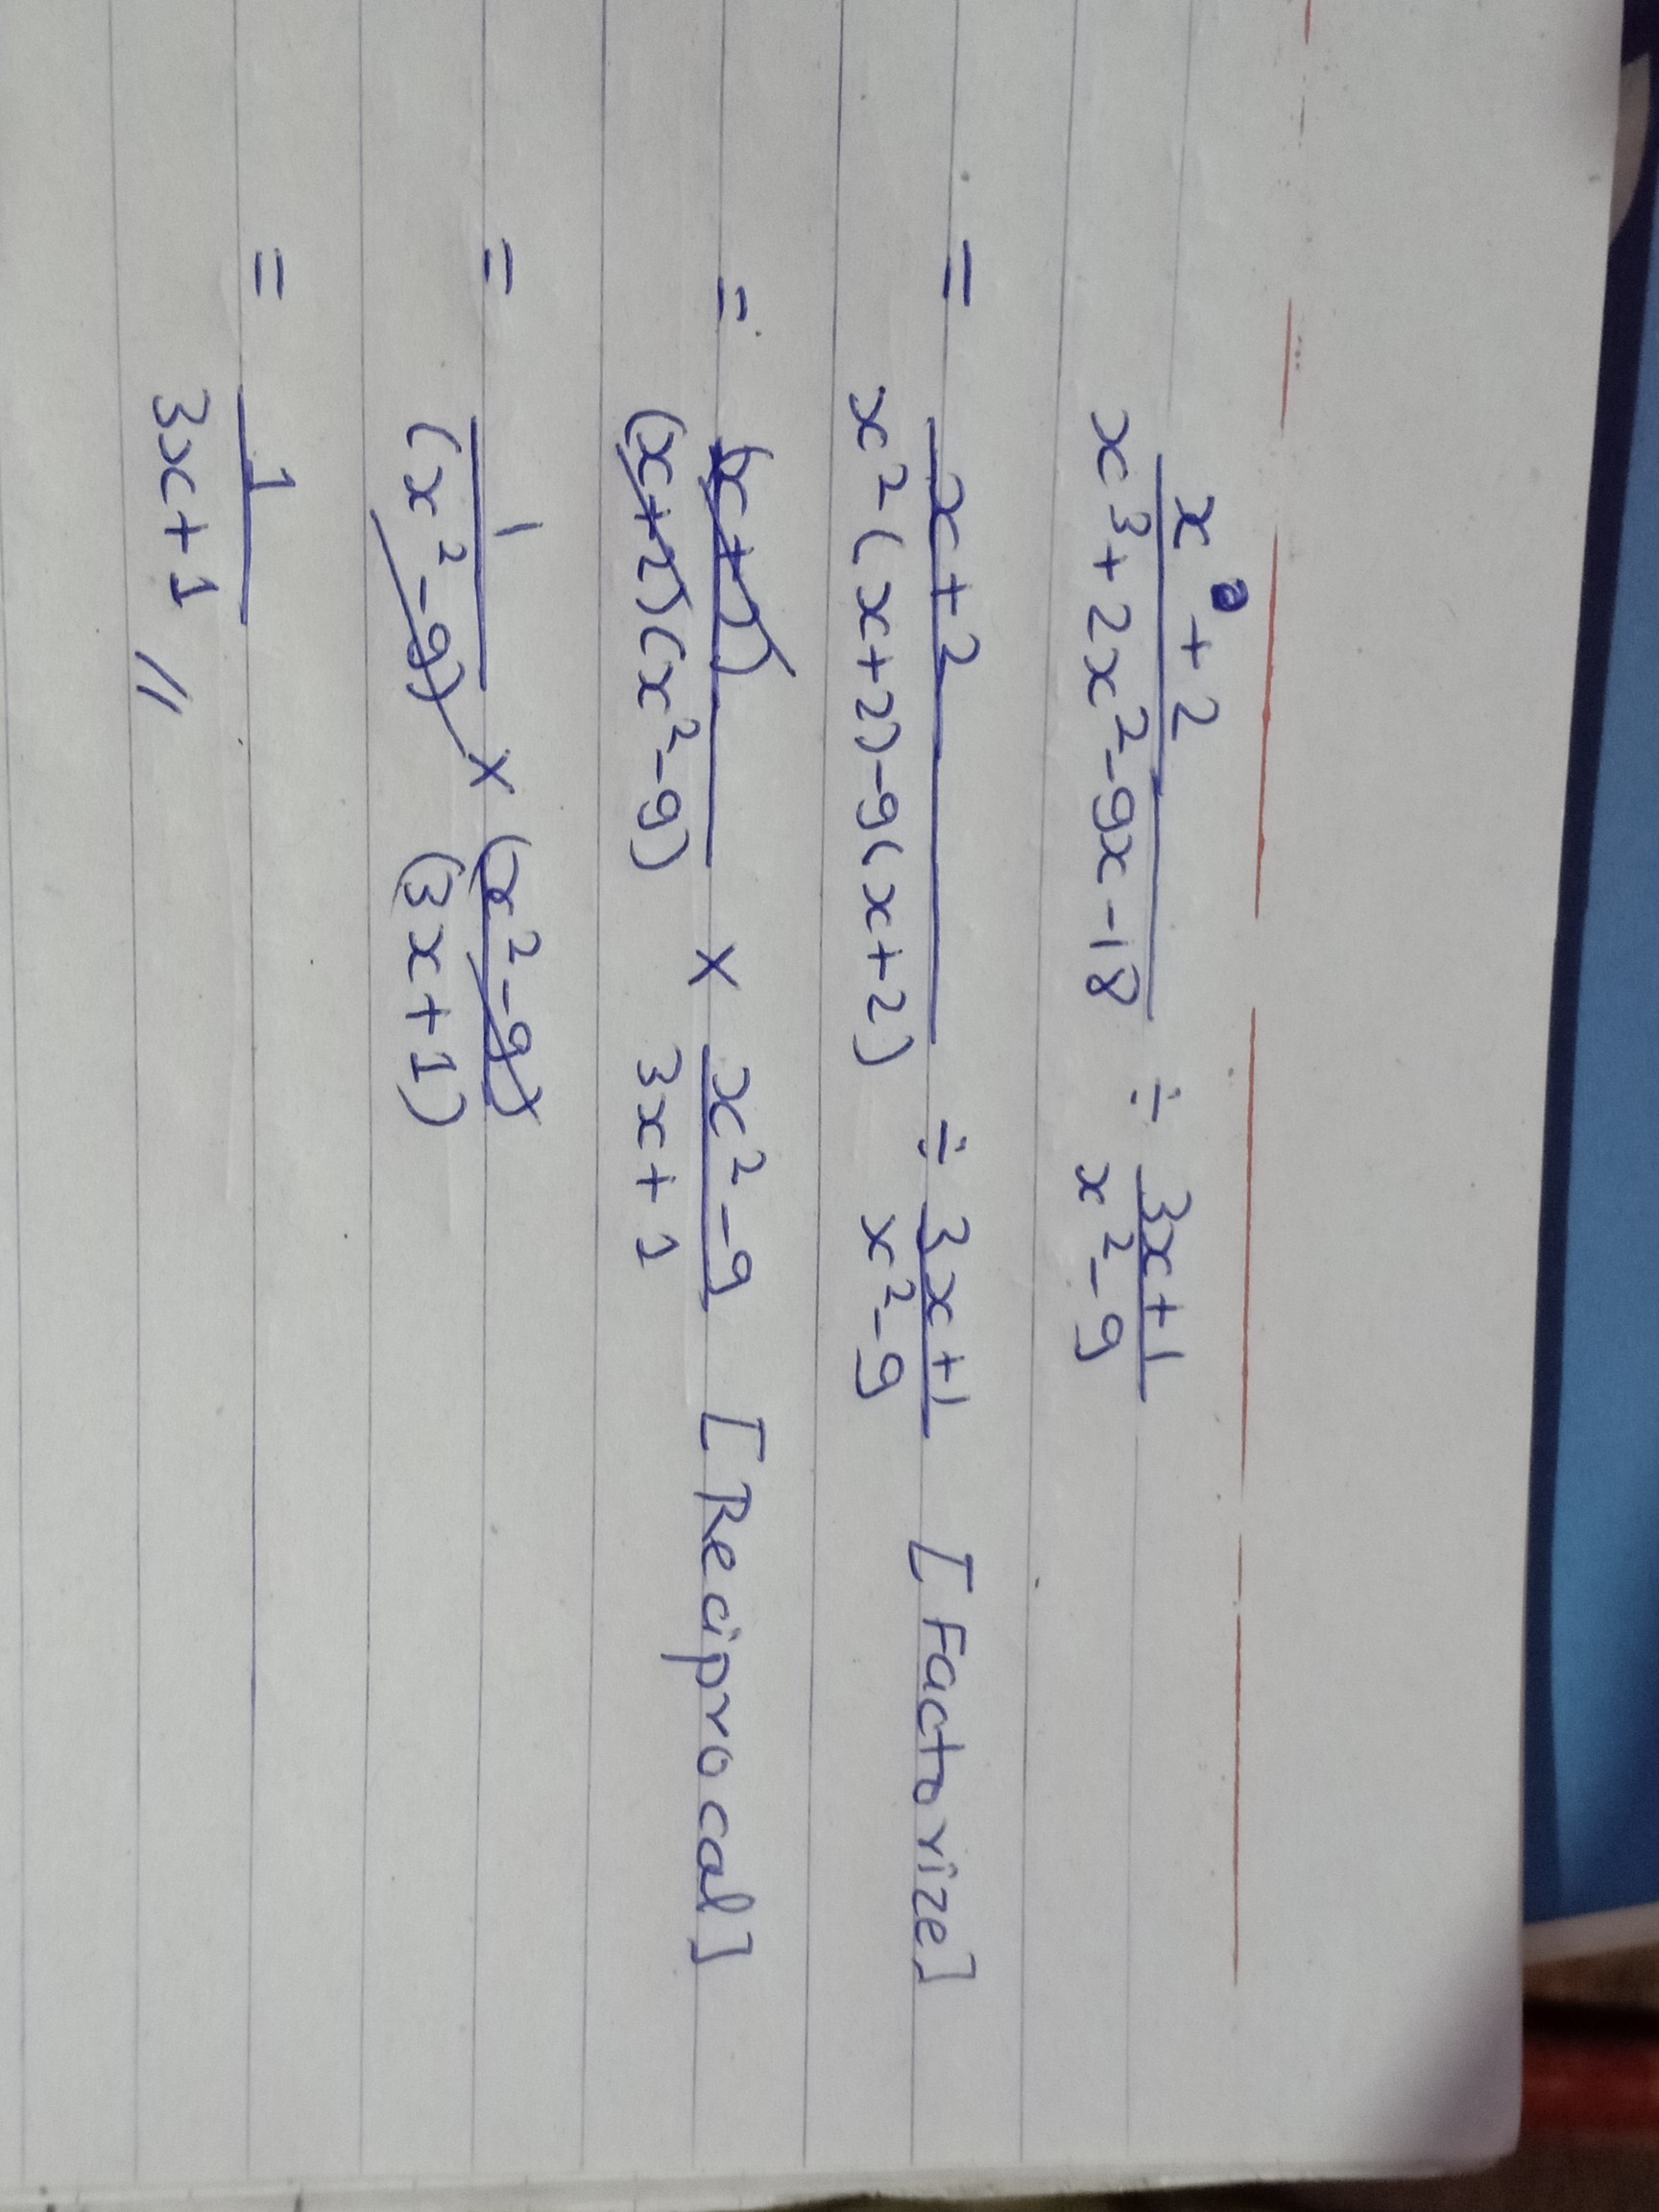 x + 2 / x³ + 2x² - 9x - 18 ÷ 3x + 1 / x² - 9
= x + 2 / x² - (x + 2) - 9(x + 2) ÷ 3x + 1 / x² - 9 [Factorize]
= (x + 2) / (x + 2)(x² - 9) × x² - 9 / 3x + 1 [Reciprocal]
= 1 / (x² - 9) × (x² - 9) / (3x + 1)
= 1 / 3x + 1 //